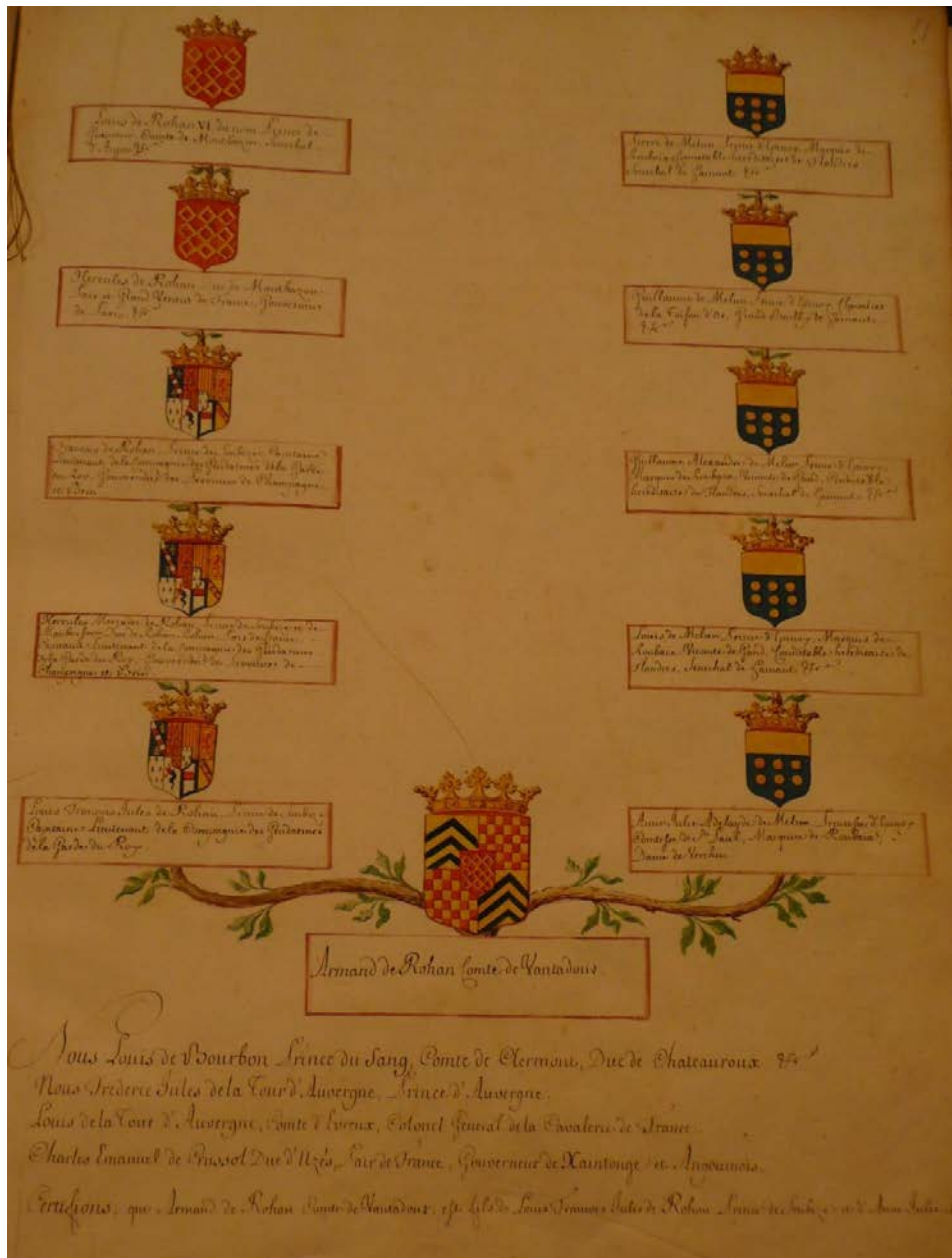 Louis de Rohan VI du nom Prince de
Guemené Comte de Montbazon Senechal
d'Anjou &c
Hercules de Rohan Duc de Montbazon
Pair et Grand Veneur de France, Gouverneur
de Paris &c
François de Rohan Prince de Soubize Capitaine
Lieutenant de la Compagnie des Gendarmes de la Garde
du Roy, Gouverneur des Provinces de Champagne
et Brie
Hercules Meriadec de Rohan Prince de Soubize Duc de
Rohan Rohan Pair de France
Lieutenant de la Compagnie des Gendarmes
de la Garde du Roy, Gouverneur des Provinces de
Champagne et Brie
Louis François Jules de Rohan Prince de Soubize
Capitaine Lieutenant de la Compagnie des Gendarmes
de la Garde du Roy
Pierre de Melun Prince d'Epinoy, Marquis de
Roubaix Connetable hereditaire de Flandres
Senechal de Hainaut &c
Guillaume de Melun Prince d'Epinoy, Chevalier
de la Toison d'Or, Grand Bailly de Hainaut
&c
Guillaume Alexandre de Melun Prince d'Epinoy
Marquis de Roubaix, Vicomte de Gand, Connetable
hereditaire de Flandres, Senechal de Hainaut &c
Louis de Melun Prince d'Epinoy, Marquis de
Roubaix Vicomte de Gand Connetable hereditaire de
Flandres, Senechal de Hainaut &c
Anne Julie Adelayde de Melun Princesse d'Epinoy
Comtesse de St. Paul, Marquise de Roubaix,
Dame de Verchin
Armand de Rohan Comte de Vantadour
Nous Louis de Bourbon Prince du Sang, Comte de Clermont, Duc de Chateauroux &c
Nous Frederic Jules de la Tour d'Auvergne, Prince d'Auvergne
Louis de la Tour d'Auvergne, Comte d'Evreux, Colonel General de la Cavalerie de France
Charles Emanuel de Crussol Duc d'Uzés, Pair de France, Gouverneur de Xaintonge et Angoumois
Certifions, que Armand de Rohan Comte de Vantadour, est fils de Louis François Jules de Rohan Prince de Soubize et d'Anne Julie